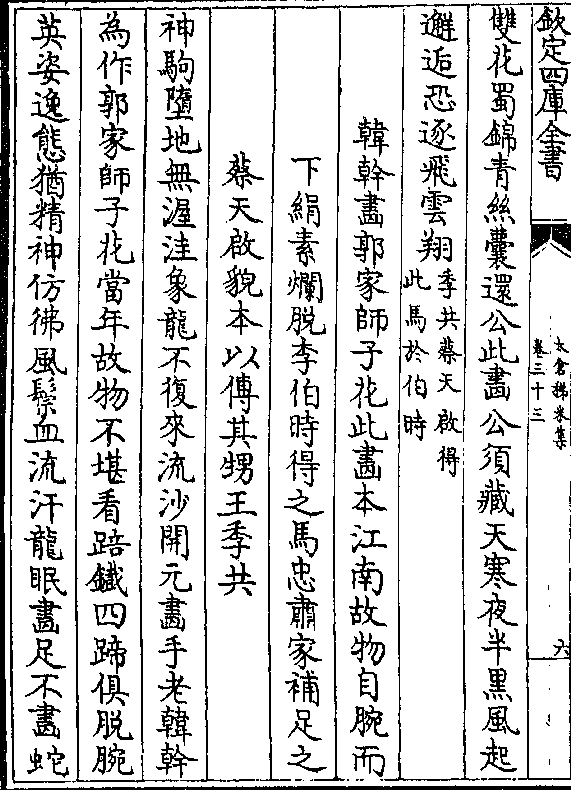 欽定四庫全書
太倉稊米集
卷三十三
六
雙花蜀錦青絲囊還公此畫公須藏天寒夜半黑風起
邂逅恐逐飛雲翔季共蔡天啟得
此馬於伯時
韓幹畫郭家師子花此畫本江南故物自腕而
下絹素爛脱李伯時得之馬忠肅家補足之
蔡天啟貌本以傳其甥王季共
神駒墮地無渥洼象龍不復來流沙開元畫手老韓幹
為作郭家師子花當年故物不堪看踣鐵四蹄俱脱腕
英姿逸態猶精神仿彿風鬃血流汗龍眠畫足不畫蛇